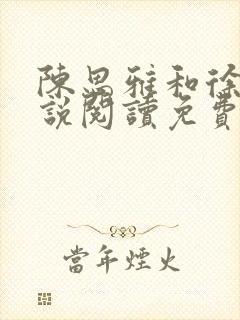 陳思雅和徐
說閱讀免費
當年煙火